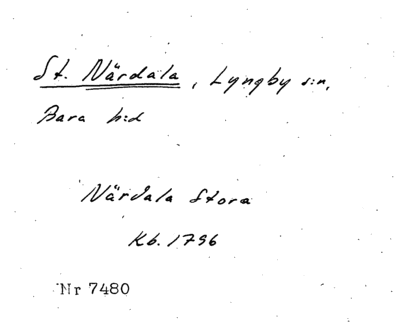 St. Närdala, Lyngby s:n,
Bara h:d
Närdala Stora
Kb. 1796
Nr 7480